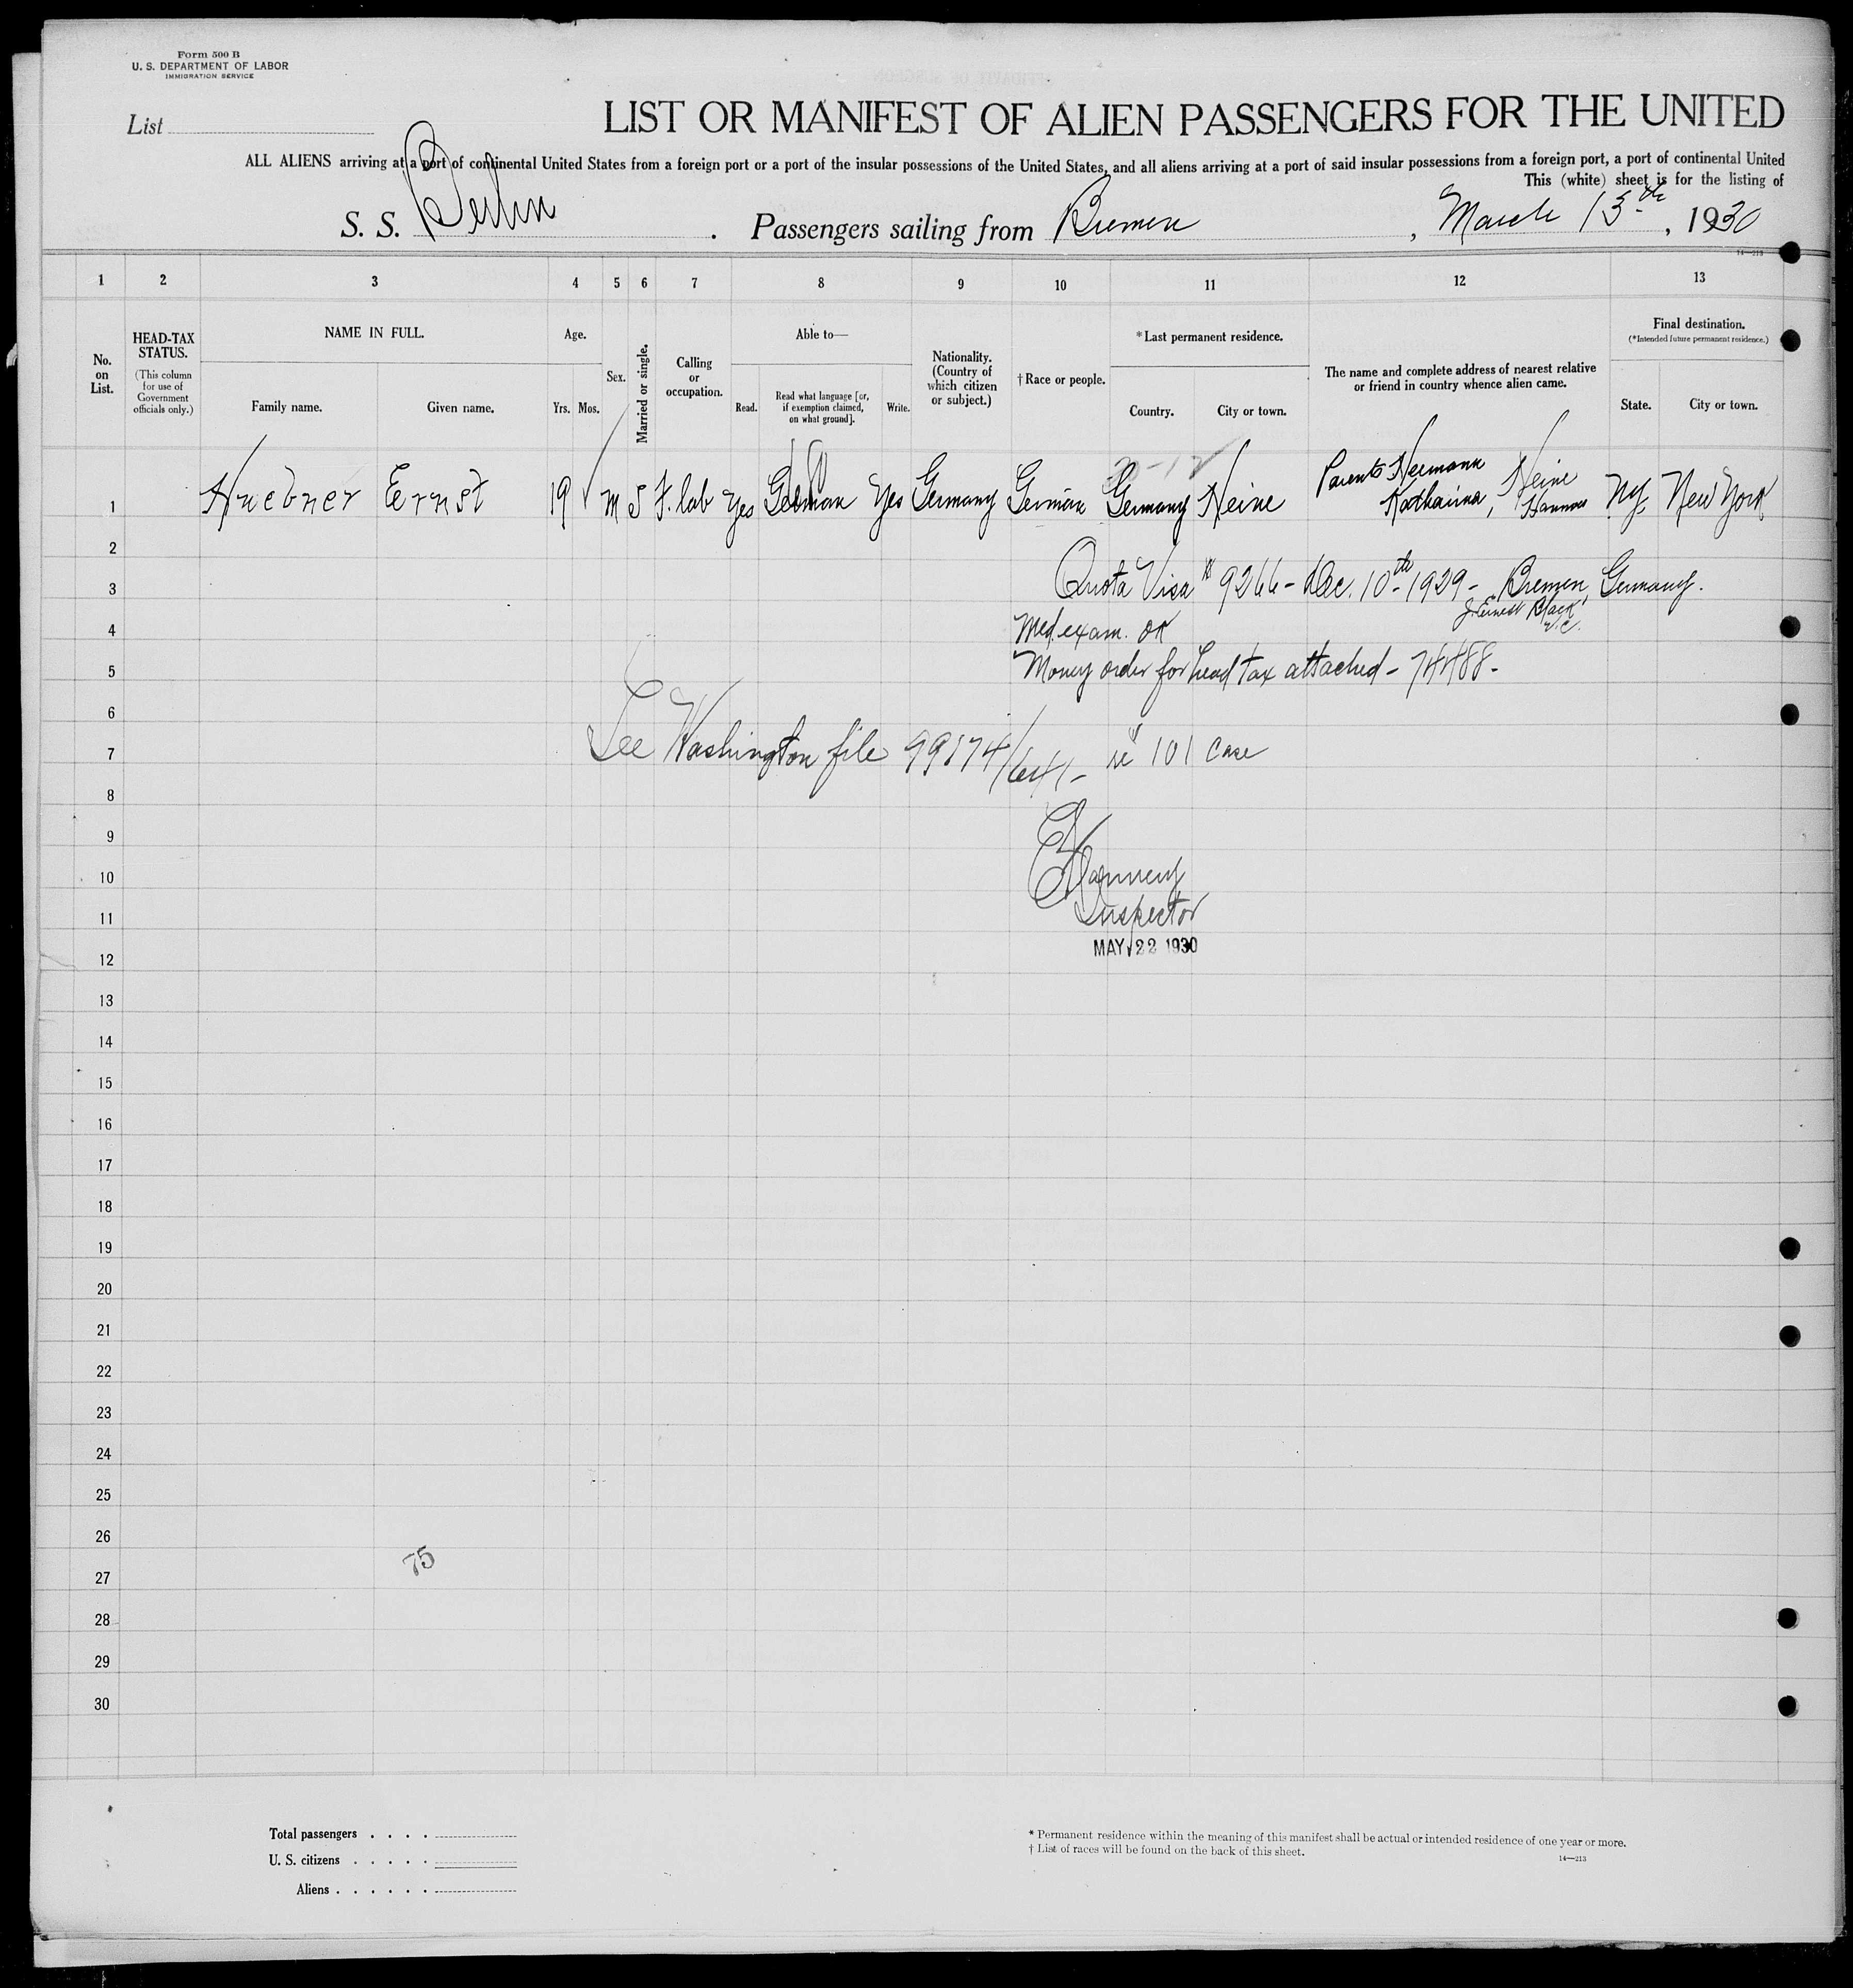 Form 500 B
U. S. DEPARTMENT OF LABOR
IMMIGRATION SERVICE
List
LIST OR MANIFEST OF ALIEN PASSENGERS FOR THE UNITED
ALL ALIENS arriving at a port of continental United States from a foreign port or a port of the insular possessions of the United States, and all aliens arriving at a port of said insular possessions from a foreign port, a port of continental United
This (white) sheet is for the listing of
S. S. Berlin . Passengers sailing from Bremen , March 13th , 1930
14—213
1 2 3 4 5 6 7 8 9 10 11 12 13
No. on List.
HEAD-TAX STATUS.
(This column for use of Government officials only.)
NAME IN FULL.
Family name. Given name.
Age.
Yrs. Mos.
Sex.
Married or single.
Calling or occupation.
Able to—
Read. Read what language [or, if exemption claimed, on what ground]. Write.
Nationality. (Country of which citizen or subject.)
†Race or people.
*Last permanent residence.
Country. City or town.
The name and complete address of nearest relative or friend in country whence alien came.
Final destination.
(*Intended future permanent residence.)
State. City or town.
30-12
1 Huebner Ernst 19 M S F. lab Yes German Yes Germany German Germany Heine Parents Hermann Katharina, Heine Hannov NY. New York
2
3 Quota Visa # 9266 - Dec. 10th 1929 - Bremen, Germany.
J. Ernest Black
V.C.
4 Med. exam. OK
5 Money order for head tax attached - 74488 -
6
7 See Washington file 99174/641 - re 101 case
8
9
10
11 Inspector
12 MAY 22 1930
13
14
15
16
17
18
19
20
21
22
23
24
25
26
75
27
28
29
30
Total passengers . . . .
U. S. citizens . . . . .
Aliens . . . . . .
* Permanent residence within the meaning of this manifest shall be actual or intended residence of one year or more.
† List of races will be found on the back of this sheet.
14—213